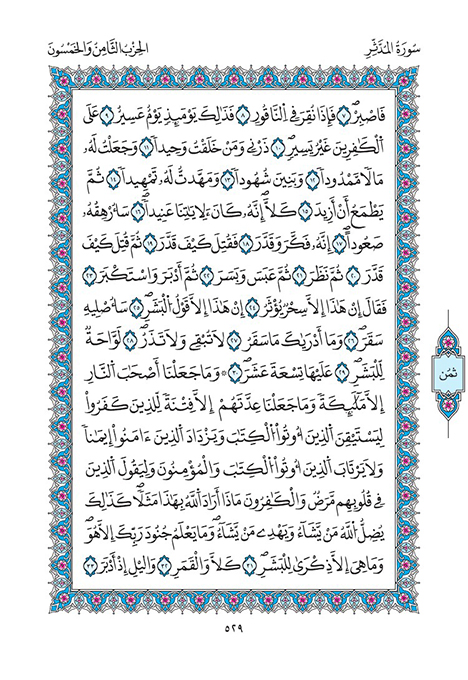 سورة المدثر
الحزب الثامن والخمسون
فَاصْبِرْ ٧ فَإِذَا نُقِرَ فِي اِلنَّاقُورِ ٨ فَذَٰلِكَ يَوْمَئِذٖ يَوْمٌ عَسِيرٌ ٩ عَلَى
اَلْكَٰفِرِينَ غَيْرُ يَسِيرٖ ١٠ ذَرْنِے وَمَنْ خَلَقْتُ وَحِيداٗ ١١ وَجَعَلْتُ لَهُۥ
مَالاٗ مَّمْدُوداٗ ١٢ وَبَنِينَ شُهُوداٗ ١٣ وَمَهَّدتُّ لَهُۥ تَمْهِيداٗ ١٤ ثُمَّ
يَطْمَعُ أَنْ أَزِيدَ ١٥ كَلَّآ إِنَّهُۥ كَانَ ءَلِأيَٰتِنَا عَنِيداٗ ١٦ سَأُرْهِقُهُۥ
صَعُوداً ١٧ اِنَّهُۥ فَكَّرَ وَقَدَّرَ ١٨ فَقُتِلَ كَيْفَ قَدَّرَ ١٩ ثُمَّ قُتِلَ كَيْفَ
قَدَّرَ ٢٠ ثُمَّ نَظَرَ ٢١ ثُمَّ عَبَسَ وَبَسَرَ ٢٢ ثُمَّ أَدْبَرَ وَاسْتَكْبَرَ ٢٣
فَقَالَ إِنْ هَٰذَآ إِلَّا سِحْرٞ يُوثَرُ ٢٤ إِنْ هَٰذَآ إِلَّا قَوْلُ اُلْبَشَرِ ٢٥ سَأُصْلِيهِ
سَقَرَ ٢٦ وَمَآ أَدْر۪يٰكَ مَا سَقَرُ ٢٧ لَا تُبْقِے وَلَا تَذَرُ ٢٨ لَوَّاحَةٞ
لِّلْبَشَرِ ٢٩ عَلَيْهَا تِسْعَةَ عَشَرَ ٣٠ وَمَا جَعَلْنَآ أَصْحَٰبَ اَلنّ۪ارِ
إِلَّا مَلَٰٓئِكَةٗ وَمَا جَعَلْنَا عِدَّتَهُمُۥٓ إِلَّا فِتْنَةٗ لِّلذِينَ كَفَرُواْ
لِيَسْتَيْقِنَ اَلذِينَ أُوتُواْ اُلْكِتَٰبَ وَيَزْدَادَ اَلذِينَ ءَامَنُوٓاْ إِيمَٰناٗ
وَلَا يَرْتَابَ اَلذِينَ أُوتُواْ اُلْكِتَٰبَ وَالْمُومِنُونَ وَلِيَقُولَ اَلذِينَ
فِي قُلُوبِهِم مَّرَضٞ وَالْكَٰفِرُونَ مَاذَآ أَرَادَ اَللَّهُ بِهَٰذَا مَثَلاٗ كَذَٰلِكَ
يُضِلُّ اُللَّهُ مَنْ يَّشَآءُ وَيَهْدِے مَنْ يَّشَآءُ وَمَا يَعْلَمُ جُنُودَ رَبِّكَ إِلَّا هُوَ
وَمَا هِيَ إِلَّا ذِكْر۪يٰ لِلْبَشَرِ ٣١ كَلَّا وَالْقَمَرِ ٣٢ وَاليْلِ إِذَ اَدْبَرَ ٣٣
ثمن
٥٢٩